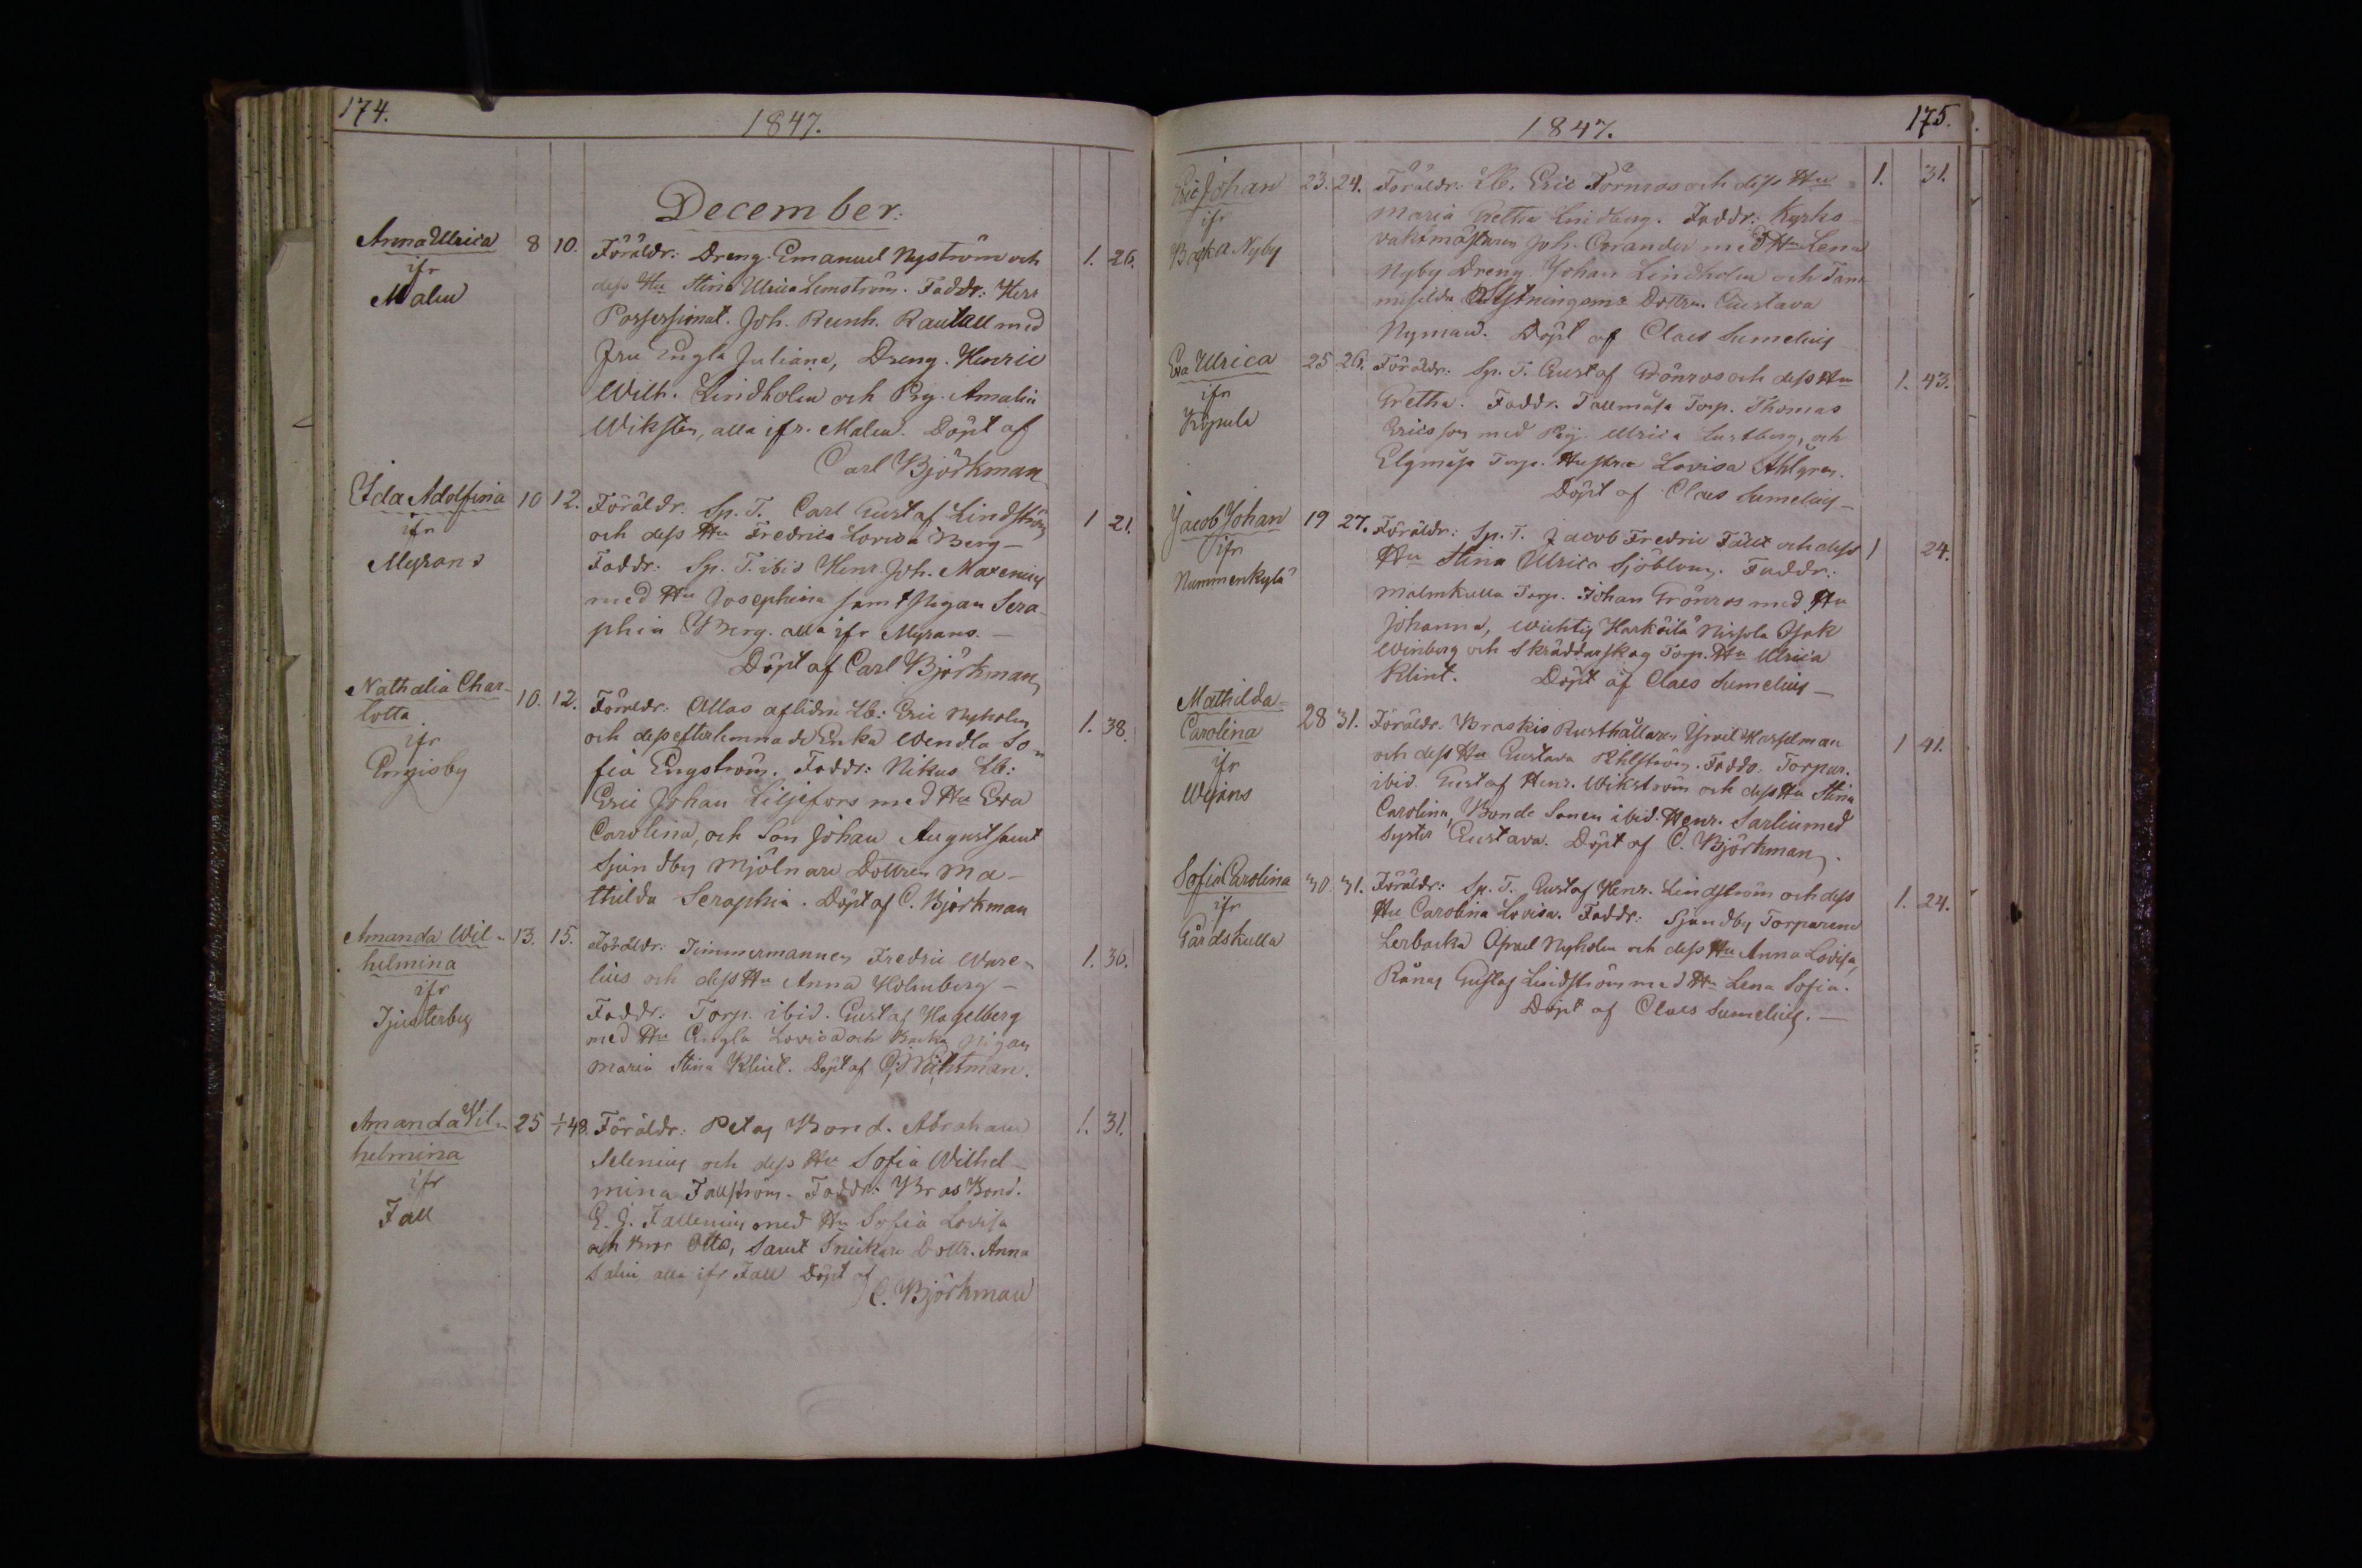 174.
1847.
December.
Anna Ulrica
ifr
Malm
8 10.
Föräldr: Dreng. Emanuel Nyström och
dess Hu Stina Ulrica Lemström. Faddr: Herr
Possessionat. Joh. Reinh. Rautell med
Fru Engla Juliana, Dreng. Henric
Wilh. Lindholm och Pig. Amalia
Wiksten, alla ifr. Malm. Döpt af
Carl Björkman
1. 26.
Ida Adolfina
ifr
Myrans
10 12.
Föräldr: Sp. T. Carl Gustaf Lindström
och dess Hu Fredrica Lovisa Berg –
Faddr: Sp. T. ibid Henr. Joh. Maxenius
med Hu Josephina samt Pigan Sera-
phia Berg. alla ifr Myrans. –
Döpt af Carl Björkman
1 21.
Nathalia Char-
lotta
ifr
Engisby
10. 12.
Föräldr: Allas aflidne Lb: Eric Nyholm
och dess efterlemnade Enka Wendla So-
fia Engström. Faddr: Nikus Lb:
Eric Johan Liljefors med Hu Eva
Carolina, och Son Johan August samt
Sjundby Mjölnare Dottren Ma-
thilda Seraphia. Döpt af C. Björkman
1. 38.
Amanda Wil-
helmina
ifr
Tjusterby
13. 15.
Föräldr: Timmermannen Fredric Ware-
lius och dess Hu Anna Holmberg –
Faddr: Torp. ibid. Gustaf Hagelberg
med Hu Engla Lovisa och Backa Pigan
Maria Stina Klint. Döpt af
1. 36.
Amanda Wil-
helmina
ifr
Fall
25 1/1 48.
Föräldr: Petas Bond. Abraham
Selenius och dess Hu Sofia Wilhel-
mina Fallström. Faddr: Bras Bond.
E. J. Fallenius med Hu Sofia Lovisa
och Bror Otto, samt Snickare Dottr. Anna
Salin alla ifr Fall Döpt af
C. Björkman
1. 31.
1847.
175.
Eric Johan
ifr
Backa Nyby
23. 24.
Föräldr: Lb. Eric Törnros och dess Hu
Maria Gretha Lindberg. Faddr: Kyrko-
vaktmästaren Joh. Corander med Hu Lena
Nyby Dreng. Johan Lindholm och
Dottren Gustava
Nyman. Döpt af Claes Sumelius
1. 31.
Eva Ulrica
ifr
Köpula
25 26.
Föräldr: Sp. T. Gustaf Grönros och dess Hu
Gretha. Faddr. Tallmåsa Torp. Thomas
Ericsson med Pig. Ulrica Lustberg, och
Elgmåsa Torp. Hustru Lovisa Ahlgren.
Döpt af Claes Sumelius –
1. 43.
Jacob Johan
ifr
Nummenkylä
19 27.
Föräldr: Sp. T. Jacob Fredric Fält och dess
Hu Stina Ulrica Sjöblom. Faddr:
Malmkulla Torp. Johan Grönros med Hu
Johanna, Wichtis Härköilä Nissola Isak
Winberg och Skräddarskog Torp. Hu Ulrica
Klint. Döpt af Claes Sumelius –
1 24.
Mathilda
Carolina
ifr
Wejans
28 31.
Föräldr. Braskis Rusthållaren Isrel Hasselman
och dess Hu Gustava Öhlström. Faddr. Torpar.
ibid. Gustaf Henr. Wikström och dess Hu Stina
Carolina, Bonde Sonen ibid. Henr. Sarlin med
Syster Gustava. Döpt af C. Björkman.
1 41.
Sofia Carolina
ifr
Gårdskulla
30. 31.
Föräldr: Sp. T. Gustaf Henr. Lindström och dess
Hu Carolina Lovisa. Faddr: Sjundby Torparene
Lerbacka Israel Nyholm och dess Hu Anna Lovisa,
Rånäs Gustaf Lindström med Hu Lena Sofia.
Döpt af Claes Sumelius. –
1. 24.